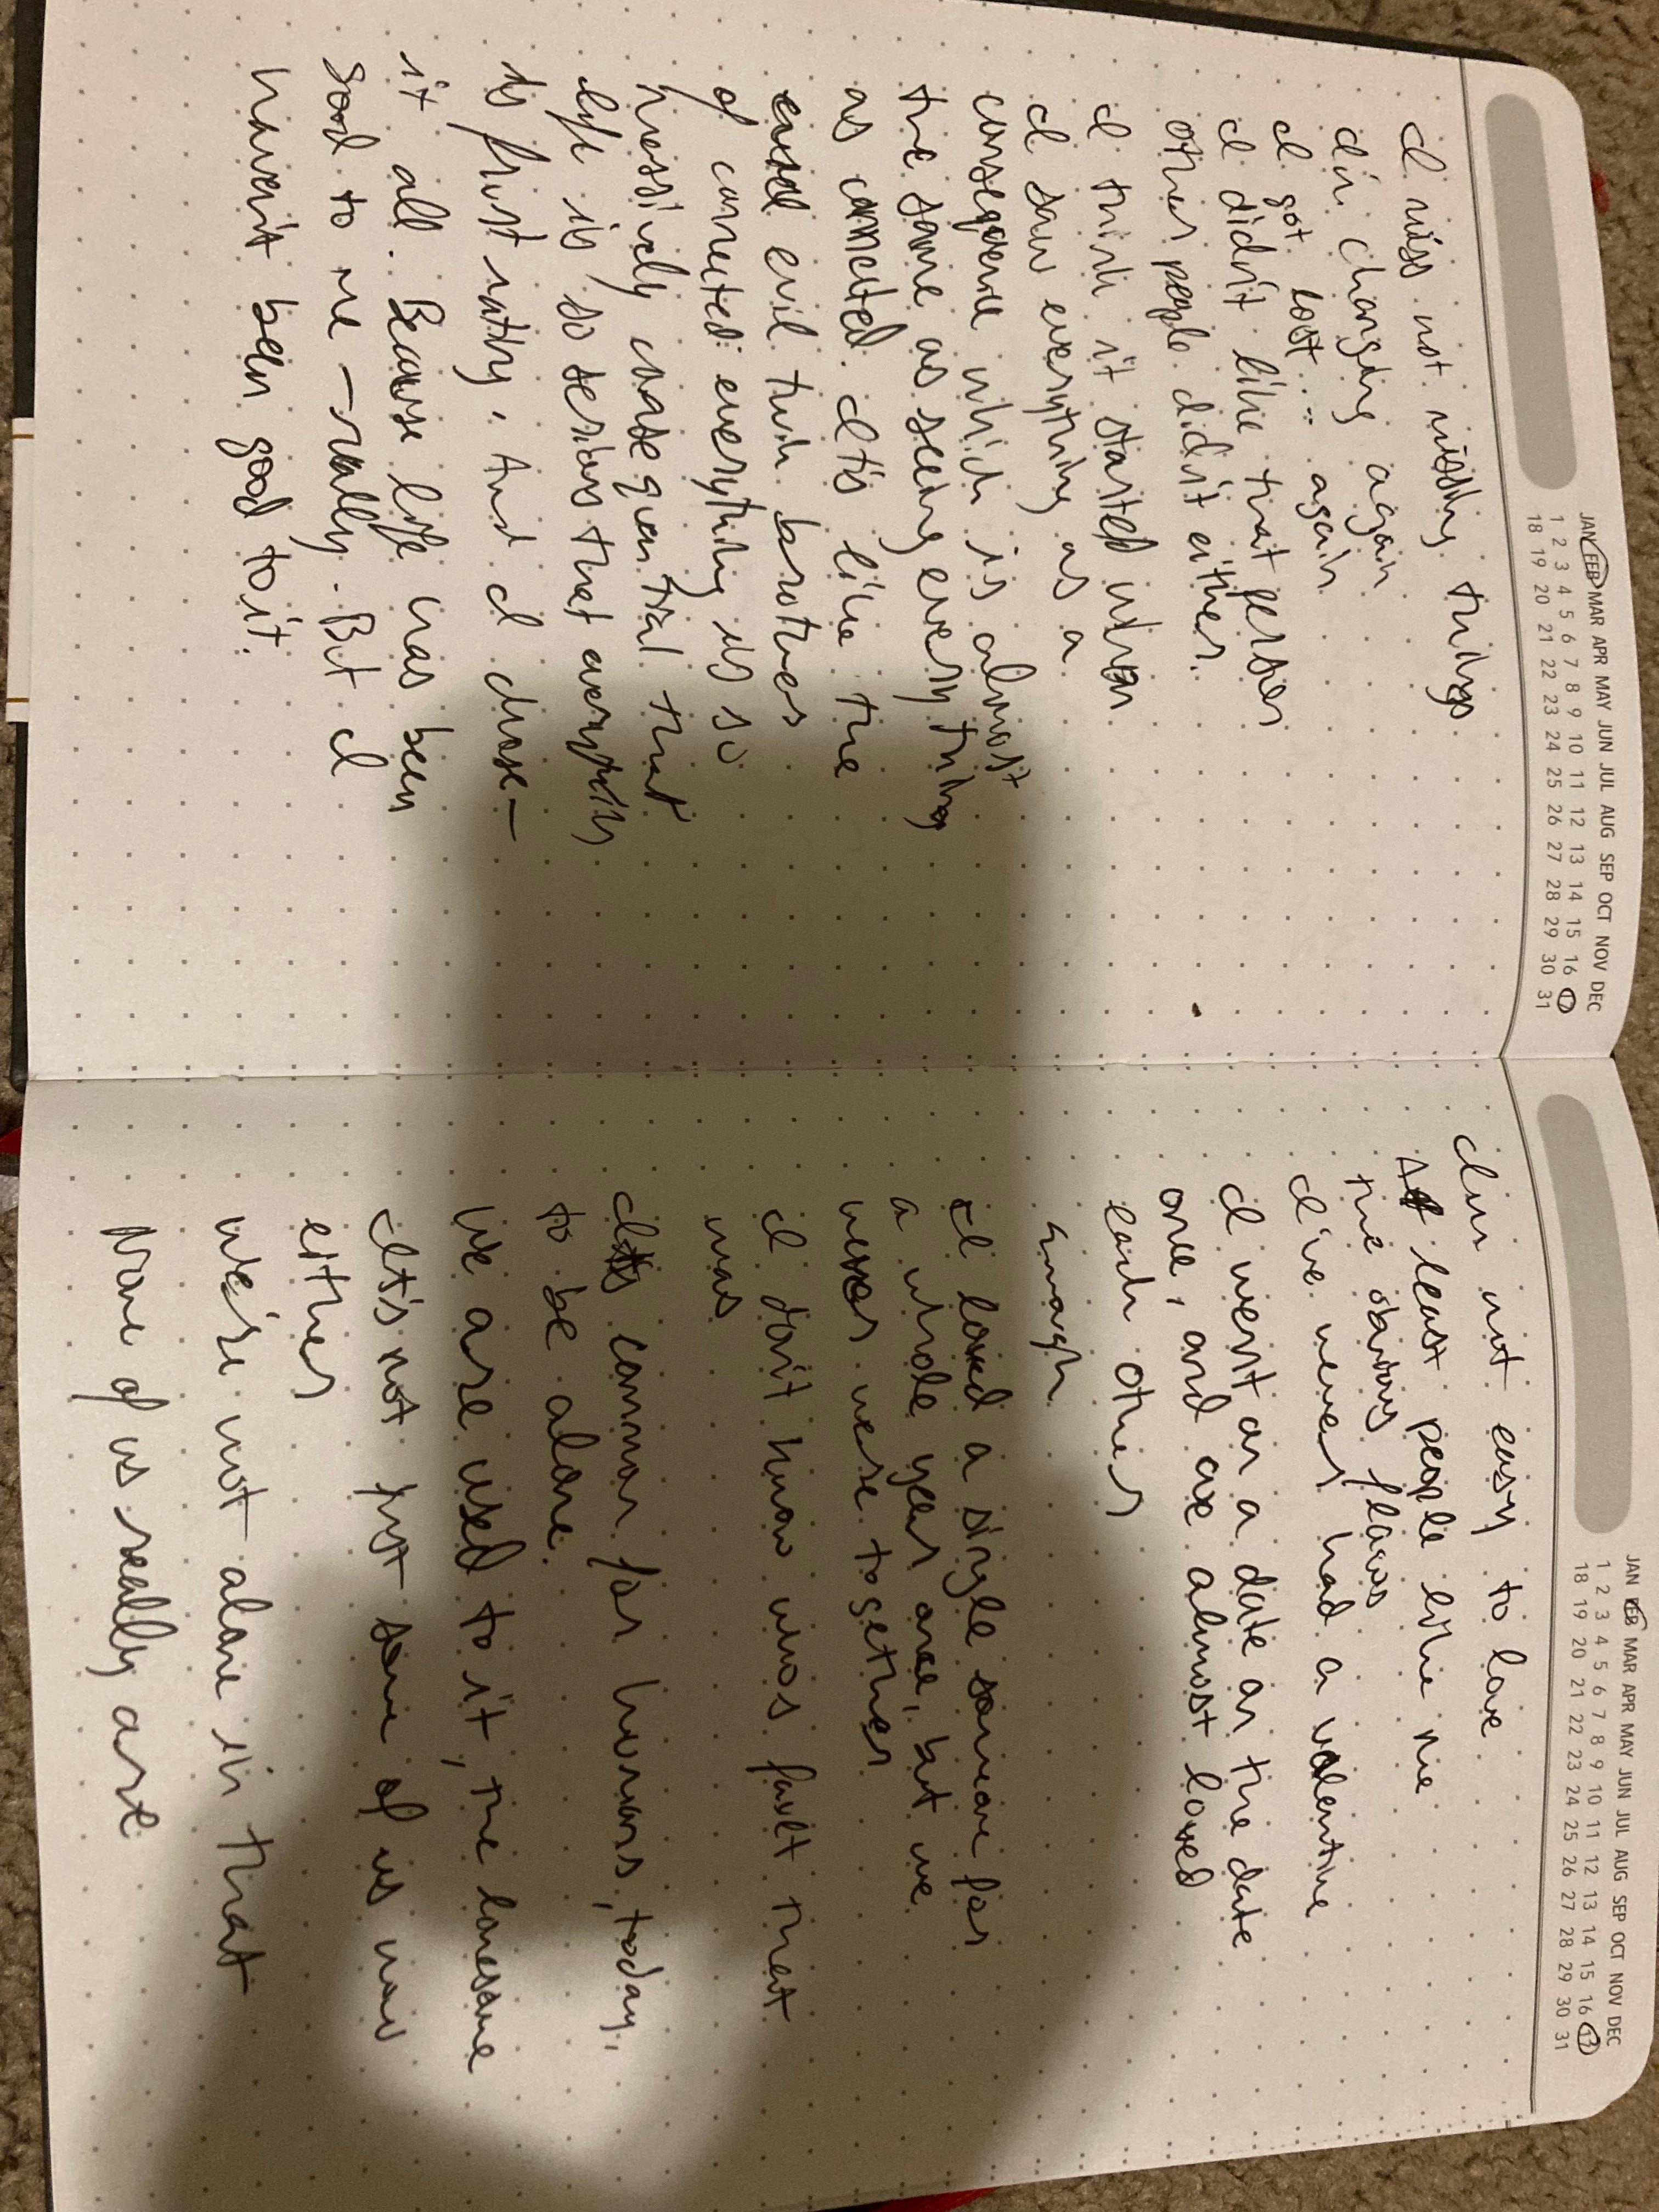 JAN FEB MAR APR MAY JUN JUL AUG SEP OCT NOV DEC
1 2 3 4 5 6 7 8 9 10 11 12 13 14 15 16 17
18 19 20 21 22 23 24 25 26 27 28 29 30 31
I miss not missing things
I'm changing again
I got lost... again
I didn't like that person
other people didn't either.
I think it started when
I saw everything as a
consequence which is almost
the same as seeing everything
as connected. It's like the
evil twin brother
of connected: everything is so
massively consequential that
life is so serious that everything
is just nothing. And I chose—
it all. Because life has been
good to me — really. But I
haven't been good to it.
JAN FEB MAR APR MAY JUN JUL AUG SEP OCT NOV DEC
1 2 3 4 5 6 7 8 9 10 11 12 13 14 15 16 17
18 19 20 21 22 23 24 25 26 27 28 29 30 31
I'm not easy to love
At least people like me
the obvious flaws
I've never had a valentine
I went on a date on the date
once, and we almost loved
each other
enough
I loved a single someone for
a whole year once, but we
never were together
I don't know whos fault that
was
It's common for humans, today,
to be alone.
We are used to it, the lonesome
It's not just some of us now
either
We're not alone in that
None of us really are